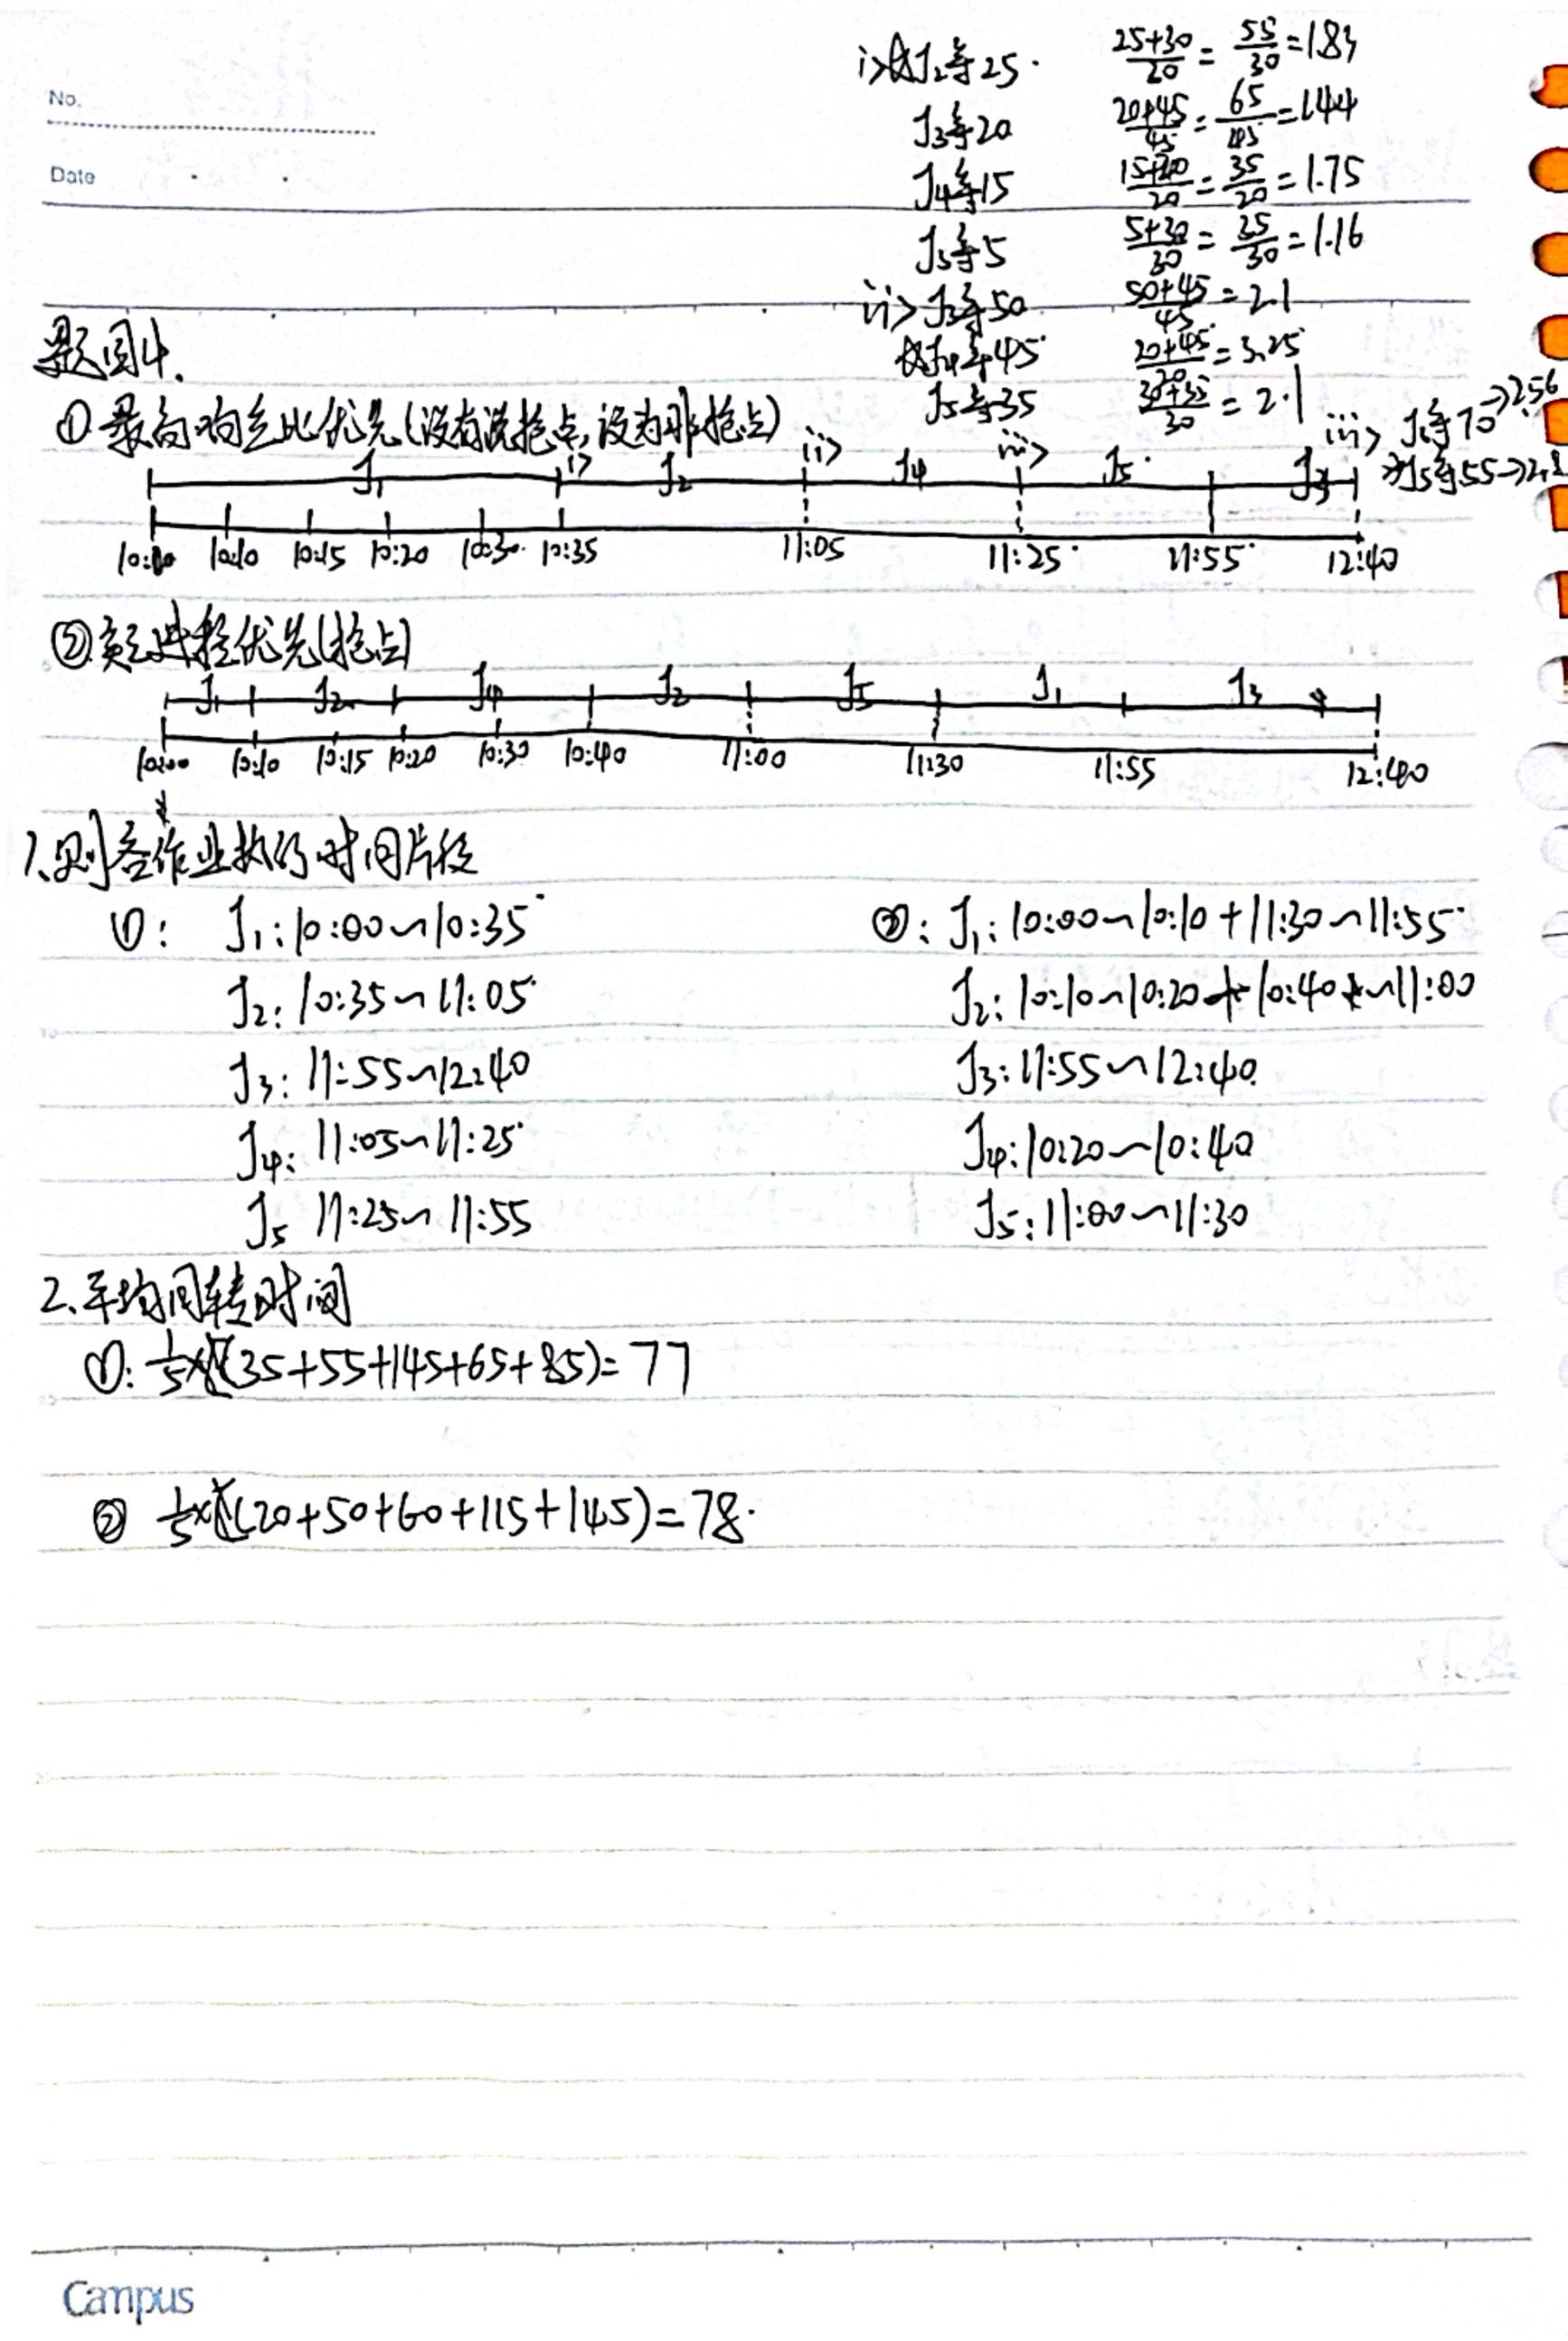 No.
Date
i> J2等25. 25+30/20 = 55/30 = 1.83
J3等20 20+45/45 = 65/45 = 1.44
J4等15 15+20/20 = 35/20 = 1.75
J5等5 5+30/30 = 35/30 = 1.16
ii> J3等50 50+45/45 = 2.1
J4等45 20+45/20 = 3.25
J5等35 30+35/30 = 2.1
iii> J3等70→2.56
J5等55→2.8
题目4.
①最高响应比优先(没有说抢占,设为非抢占)
J1 i> J2 ii> J4 iii> J5 J3
10:00 10:10 10:15 10:20 10:30 10:35 11:05 11:25 11:55 12:40
②短进程优先(抢占)
J1 J2 J4 J2 J5 J1 J3
10:00 10:10 10:15 10:20 10:30 10:40 11:00 11:30 11:55 12:40
1、则各作业执行时间片段
①: J1: 10:00~10:35 ②: J1: 10:00~10:10+11:30~11:55
J2: 10:35~11:05 J2: 10:10~10:20+10:40~11:00
J3: 11:55~12:40 J3: 11:55~12:40
J4: 11:05~11:25 J4: 10:20~10:40
J5 11:25~11:55 J5: 11:00~11:30
2、平均周转时间
①: 1/5×(35+55+145+65+85)=77
② 1/5×(20+50+60+115+145)=78.
Campus